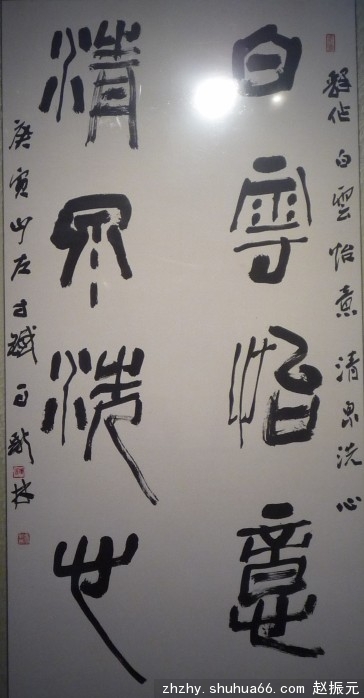 釋作白雲怡意清泉洗心
白雲怡意
清泉洗心
庚寅山左
zhzhy.shuhua66.com 赵振元